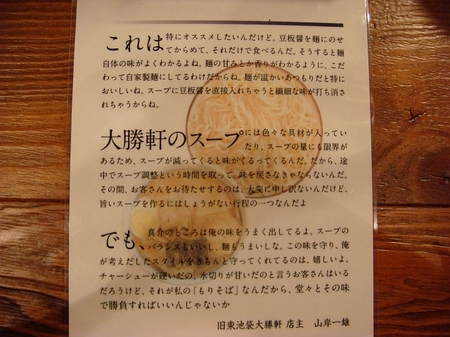 これは特にオススメしたいんだけど。豆板醤を麺にのせ
てからめて、それだけで食べるんだ。そうすると麺
自体の味がよくわかるよね。麺の甘みとか香りがわかるように、こだ
わって自家製麺にしてるわけだからね。麺が温かいあつもりだと特に
おいしいね。スープに豆板醤を直接入れちゃうと繊細な味が打ち消さ
れちゃうからね。
大勝軒のスープには色々な具材が入ってい
たり、スープの量にも限界が
あるため、スープが減ってくると味がくるってくるんだ。だから、途
中でスープ調整という時間を取って、味を戻さなきゃならないんだ。
その間、お客さんをお待たせするのは、大変に申し訳ないんだけど、
旨いスープを作るにはしょうがない行程の一つなんだよ
でも、真介のところは俺の味をうまく出してるよ。スープの
バランスもいいし、麺もうまいしな。この味を守り、俺
が考えだしたスタイルをきちんと守ってくれてるのは、嬉しいよ。
チャーシューが硬いだの、水切りが甘いだのと言うお客さんはいる
だろうけど、それが私の「もりそば」なんだから、堂々とその味
で勝負すればいいんじゃないか
旧東池袋大勝軒 店主 山岸一雄